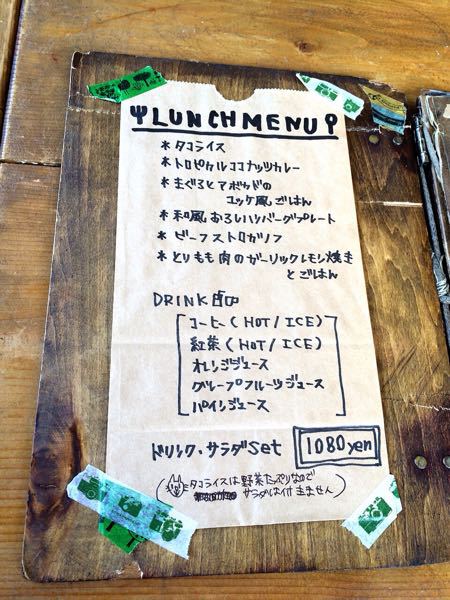 LUNCH MENU
* タコライス
* トロピカルココナッツカレー
* まぐろとアボカドの
ユッケ風ごはん
* 和風おろしハンバーグプレート
* ビーフストロガノフ
* とりもも肉のガーリックレモン焼き
とごはん
DRINK
コーヒー (HOT/ICE)
紅茶 (HOT/ICE)
オレンジジュース
グレープフルーツジュース
パインジュース
ドリンク・サラダset 1080yen
(タコライスは野菜たっぷりなので
サラダは付きません)